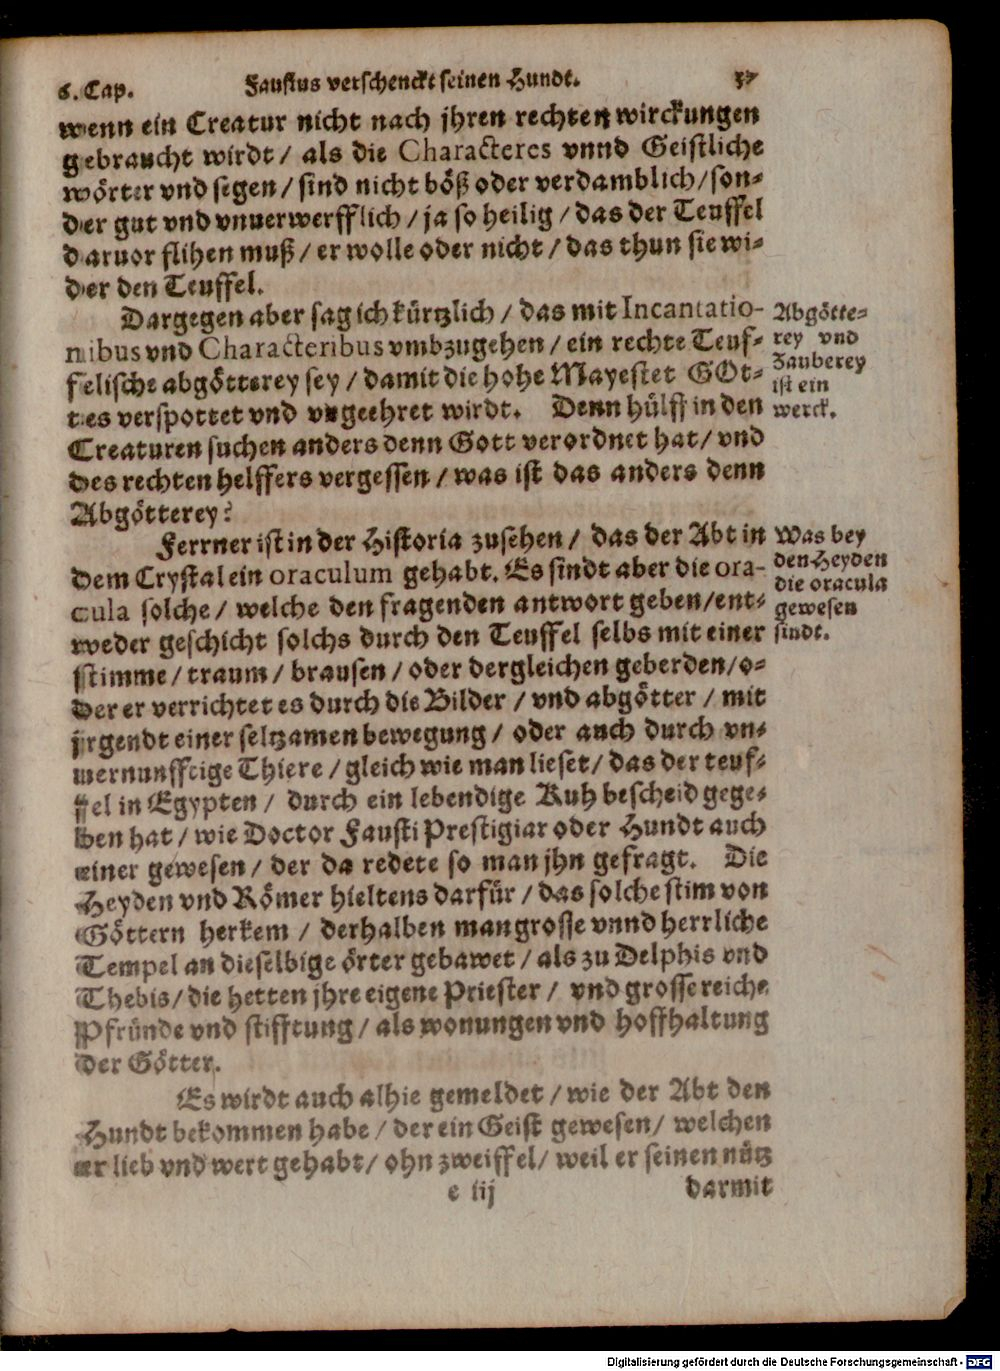 6. Cap. Faustus verschenckt seinen Hundt. 37
wenn ein Creatur nicht nach jhren rechten wirckungen
gebraucht wirdt / als die Characteres vnnd Geistliche
wörter vnd segen / sind nicht böß oder verdamblich / son-
der gut vnd vnuerwerfflich / ja so heilig / das der Teuffel
daruor flihen muß / er wolle oder nicht / das thun sie wi-
der den Teuffel.
Dargegen aber sag ich kürtzlich / das mit Incantatio-
nibus vnd Characteribus vmbzugehen / ein rechte Teuf-
felische abgötterey sey / damit die hohe Mayestet GOt-
tes verspottet vnd vngeehret wirdt. Denn hülff in den
Creaturen suchen anders denn Gott verordnet hat / vnd
des rechten helffers vergessen / was ist das anders denn
Abgötterey?
Abgötte-
rey vnd
Zauberey
ist ein
werck.
Ferrner ist in der Historia zusehen / das der Abt in
dem Crystal ein oraculum gehabt. Es sindt aber die ora-
cula solche / welche den fragenden antwort geben / ent-
weder geschicht solchs durch den Teuffel selbs mit einer
stimme / traum / brausen / oder dergleichen geberden / o-
der er verrichtet es durch die Bilder / vnd abgötter / mit
jrgendt einer seltzamen bewegung / oder auch durch vn-
uernunfftige Thiere / gleich wie man lieset / das der teuf-
fel in Egypten / durch ein lebendige Kuh bescheid gege-
ben hat / wie Doctor Fausti Prestigiar oder Hundt auch
einer gewesen / der da redete so man jhn gefragt. Die
Heyden vnd Römer hieltens darfür / das solche stim von
Göttern herkem / derhalben man grosse vnnd herrliche
Tempel an dieselbige örter gebawet / als zu Delphis vnd
Thebis / die hetten jhre eigene Priester / vnd grosse reiche
Pfründe vnd stifftung / als wonungen vnd hoffhaltung
der Götter.
Was bey
den Heyden
die oracula
gewesen
sindt.
Es wirdt auch alhie gemeldet / wie der Abt den
Hundt bekommen habe / der ein Geist gewesen / welchen
er lieb vnd wert gehabt / ohn zweiffel / weil er seinen nütz
e iij darmit
Digitalisierung gefördert durch die Deutsche Forschungsgemeinschaft - DFG